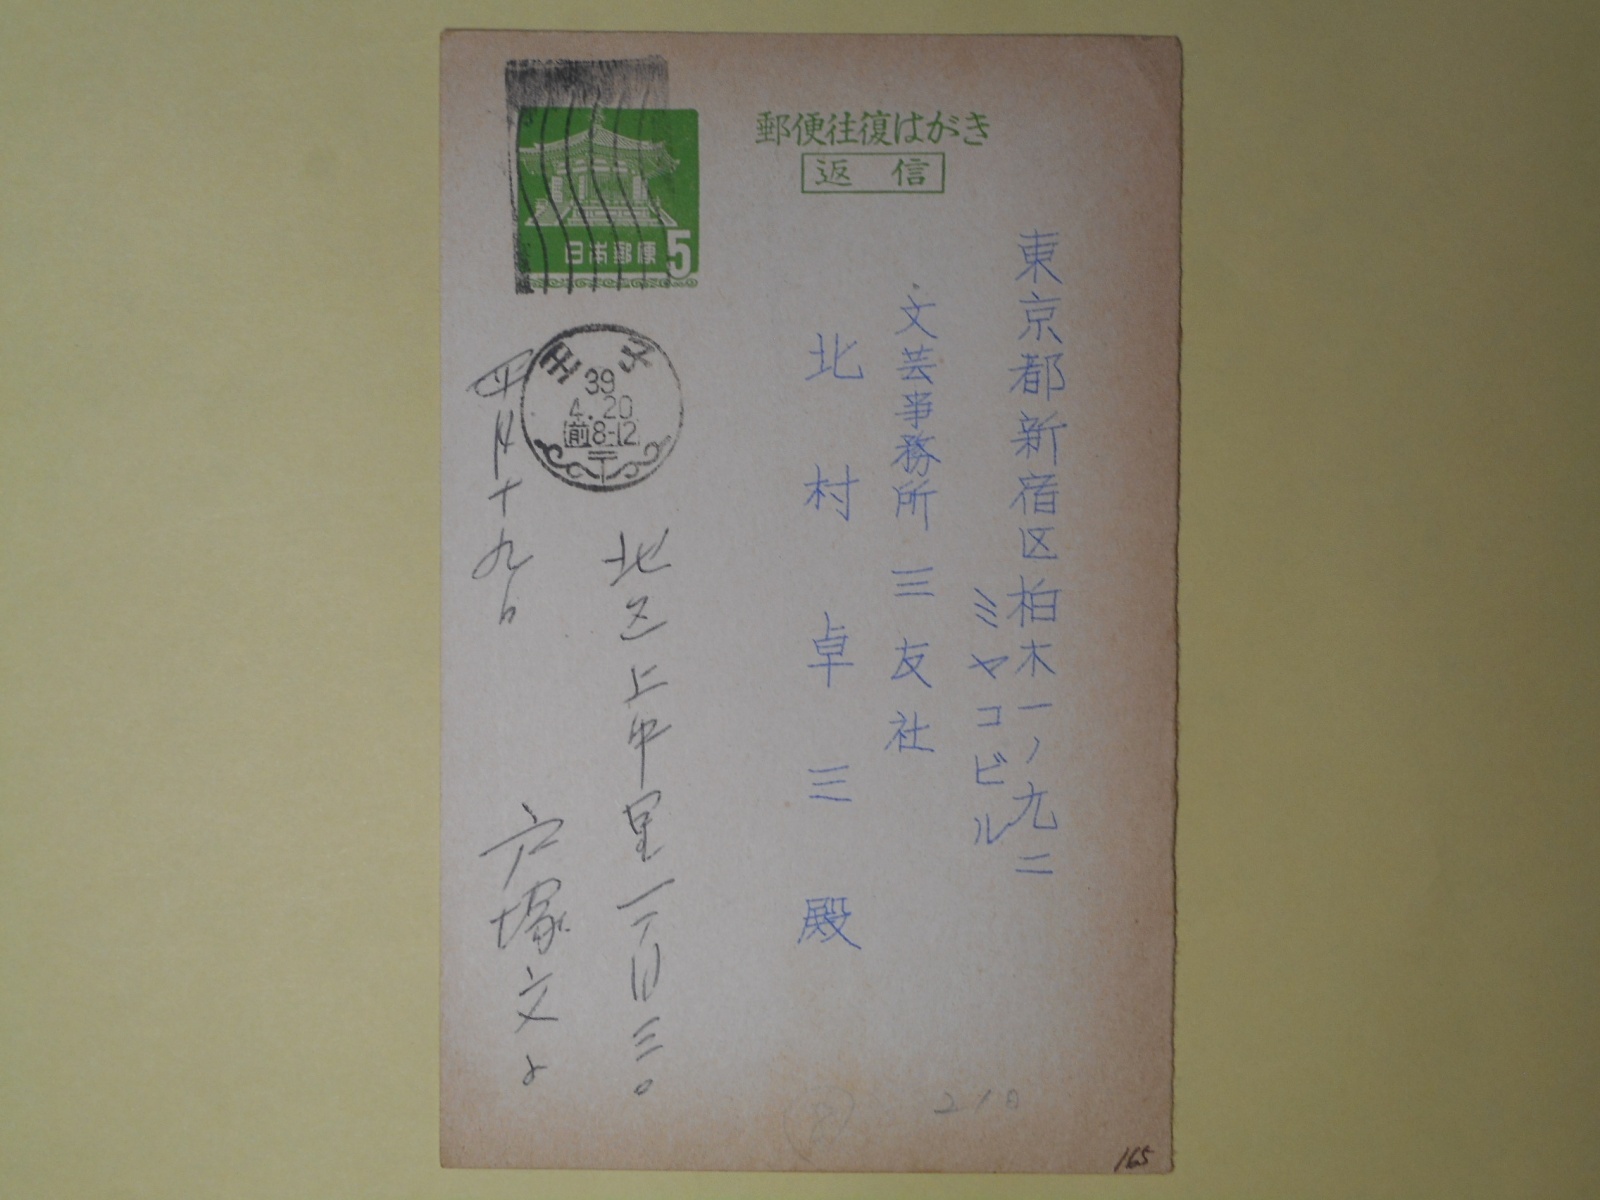 郵便往復はがき
返信
日本郵便 5
東京都新宿区柏木一ノ九二
ミヤコビル
文芸事務所三友社
北村卓三殿
王子
39
4.20
前8-12
〒
北区上中里一丁目三〇
戸塚文子
四月十九日
21日
165